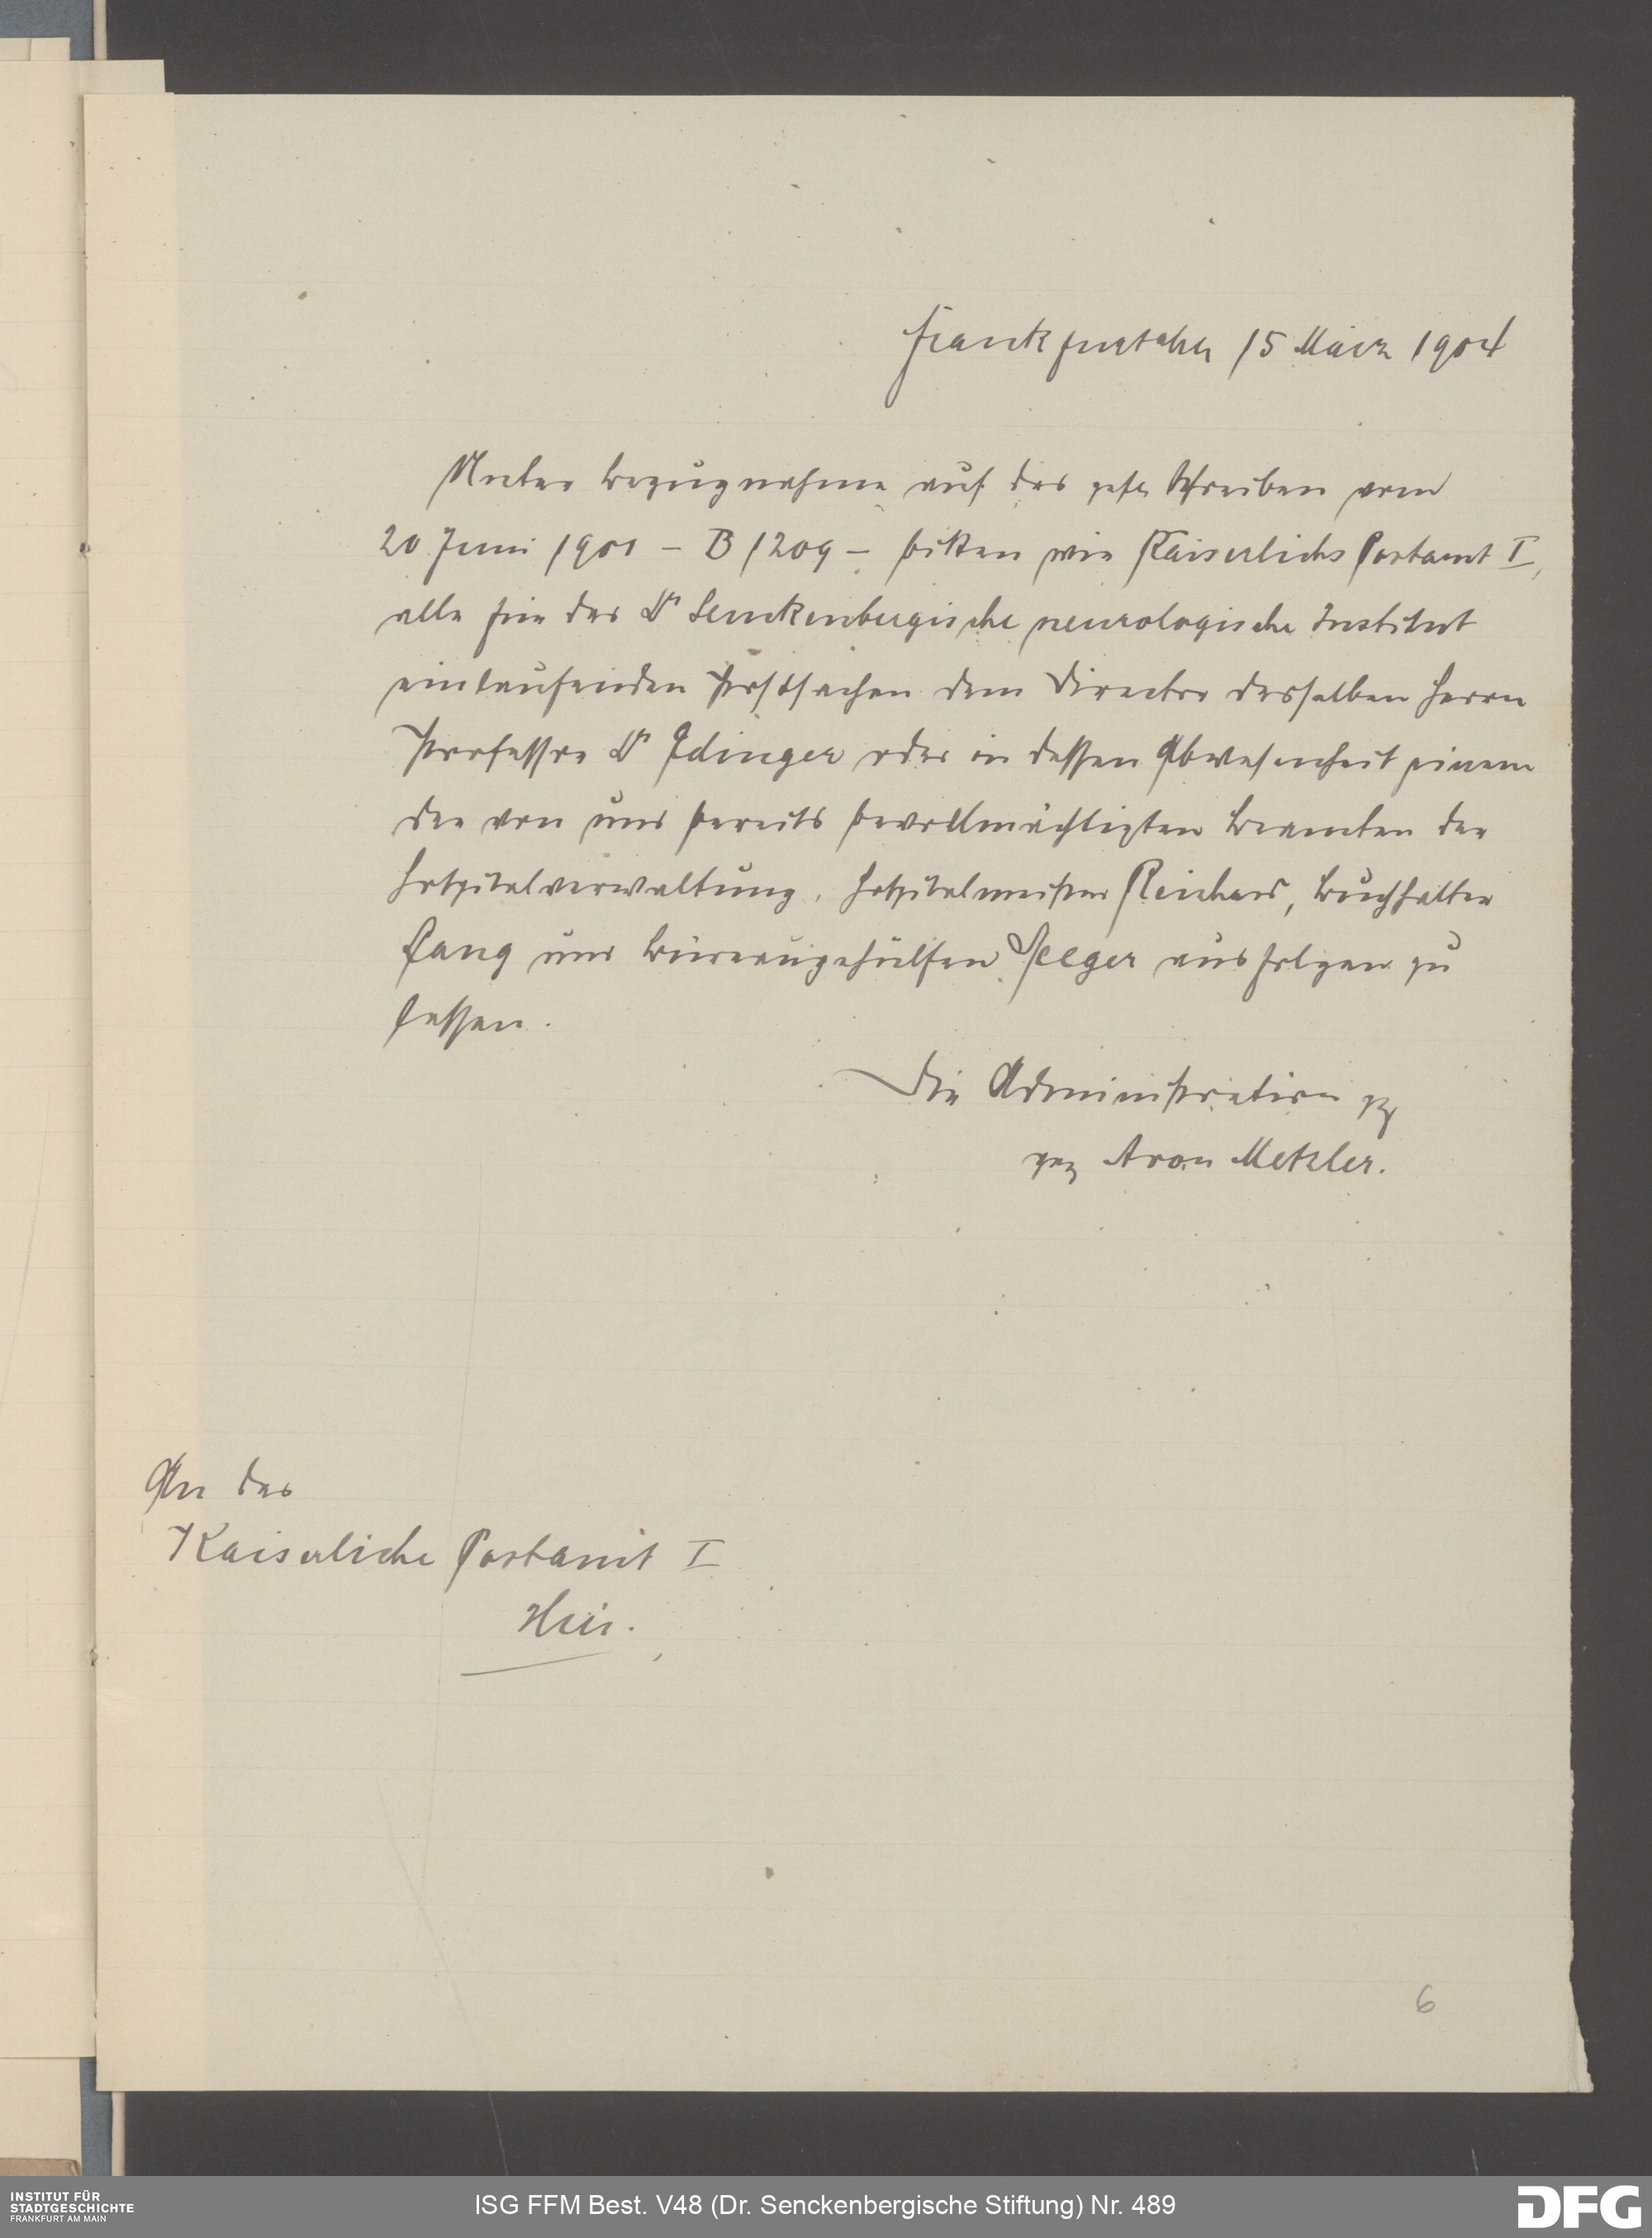 Frankfurt a/M 15 März 1904
Unter Bezugnahme auf das gefl. Schreiben vom
20 Juni 1901 – B 1209 – bitten wir Kaiserliches Postamt I,
alle für das Dr Senckenbergische neurologische Institut
einlaufenden Postsachen dem Director desselben Herrn
Professor Dr Edinger oder in dessen Abwesenheit einem
der von uns bereits bevollmächtigten Beamten der
Hospitalverwaltung, Hospitalmeister Reichard, Buchhalter
Lang und Büreaugehülfen Seeger ausfolgen zu
lassen.
Die Administration
gez Aron Metzler.
An das
Kaiserliche Postamt I
Hier.
6
INSTITUT FÜR
STADTGESCHICHTE
FRANKFURT AM MAIN
ISG FFM Best. V48 (Dr. Senckenbergische Stiftung) Nr. 489
DFG